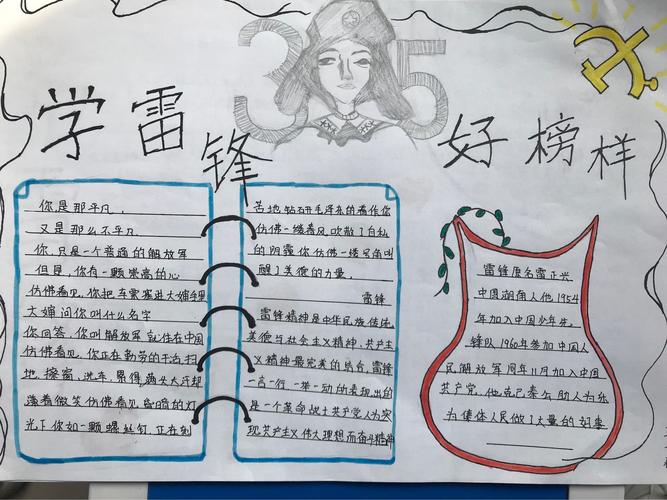 3 5
学雷锋
好榜样
你是那平凡，
又是那么不平凡
你，只是一个普通的解放军
但是，你有一颗崇高的心
仿佛看见，你把车票塞进大婶手里
大婶问你叫什么名字
你回答，你叫解放军就住在中国
仿佛看见，你正在勤劳的干活，扫
地，擦窗，洗车，累得满头大汗却
蓬着微笑仿佛看见昏暗的灯
光下你如一颗螺丝钉，正在刻
苦地钻研毛泽东的着作你
仿佛一缕春风吹散了自私
的阴霾你仿佛一缕号角叫
醒了美德的力量，
雷锋
雷锋精神是中华民族传统
美德与社会主义精神，共产主
义精神最完美的结合，雷锋
一言一行一举一动的表现出的
是一个革命战士共产党人为实
现共产主义伟大理想而奋斗精神
雷锋原名雷正兴
中国湖南人他1954
年加入中国少年先
锋队1960年参加中国人
民解放军同年11月加入中国
共产党，他克己奉公助人为乐
为集体人民做了大量的好事